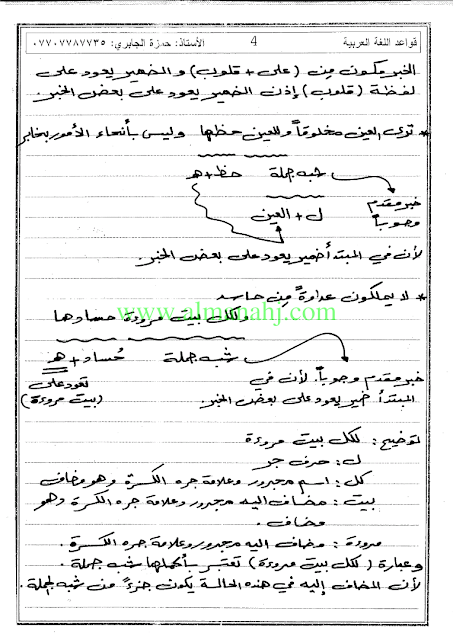 قواعد اللغة العربية 4 الأستاذ: حمزة الجابري: ٠٧٧٠٧٧٨٧٧٣٥
الخبر مكون من (على + قلوب) و الضمير يعود على
لفظة (قلوب) إذن الضمير يعود على بعض الخبر.
* ترى العين مخلوقاً وللعين حظها وليس بأنحاء الأمور بخابر
شبه جملة حظ + هـ
خبر مقدم
وجوباً
ل + العين
لأن في المبتدأ ضمير يعود على بعض الخبر.
* لا يملكون عداوةً من حاسد
ولكل بيت مروءة حسادها
www.almanahj.com
شبه جملة حُساد + هـ
خبر مقدم وجوباً. لأن في تعود على
المبتدأ ضمير يعود على بعض الخبر. (بيت مروءة)
توضيح: لكل بيت مروءة
ل: حرف جر
كل: اسم مجرور وعلامة جره الكسرة وهو مضاف
بيت: مضاف اليه مجرور وعلامة جره الكسرة وهو
مضاف.
مروءة: مضاف اليه مجرور وعلامة جره الكسرة.
وعبارة (لكل بيت مروءة) تعتبر بأكملها شبه جملة.
لأن المضاف إليه في هذه الحالة يكون جزءً من شبه الجملة.